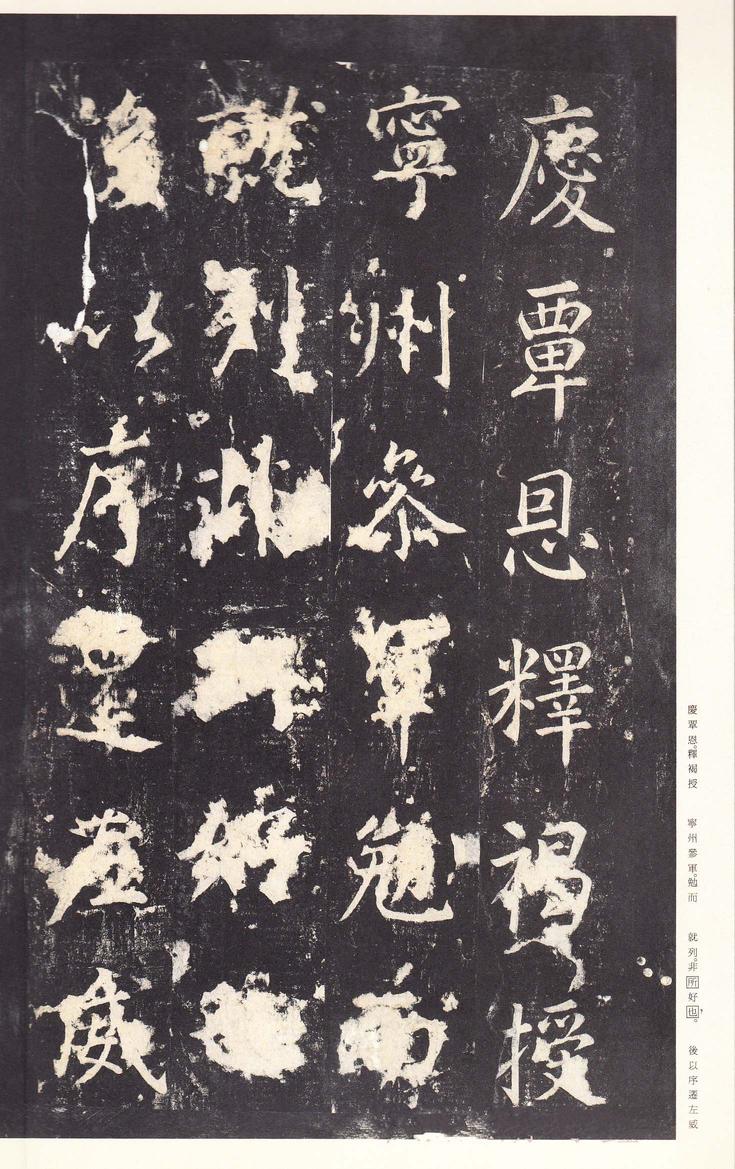 慶覃恩釋褐授
寧州參軍勉而
就列非好
後以序遷左威
慶覃恩。釋褐授　寧州參軍。勉而　就列。非所好也。　後以序遷左威